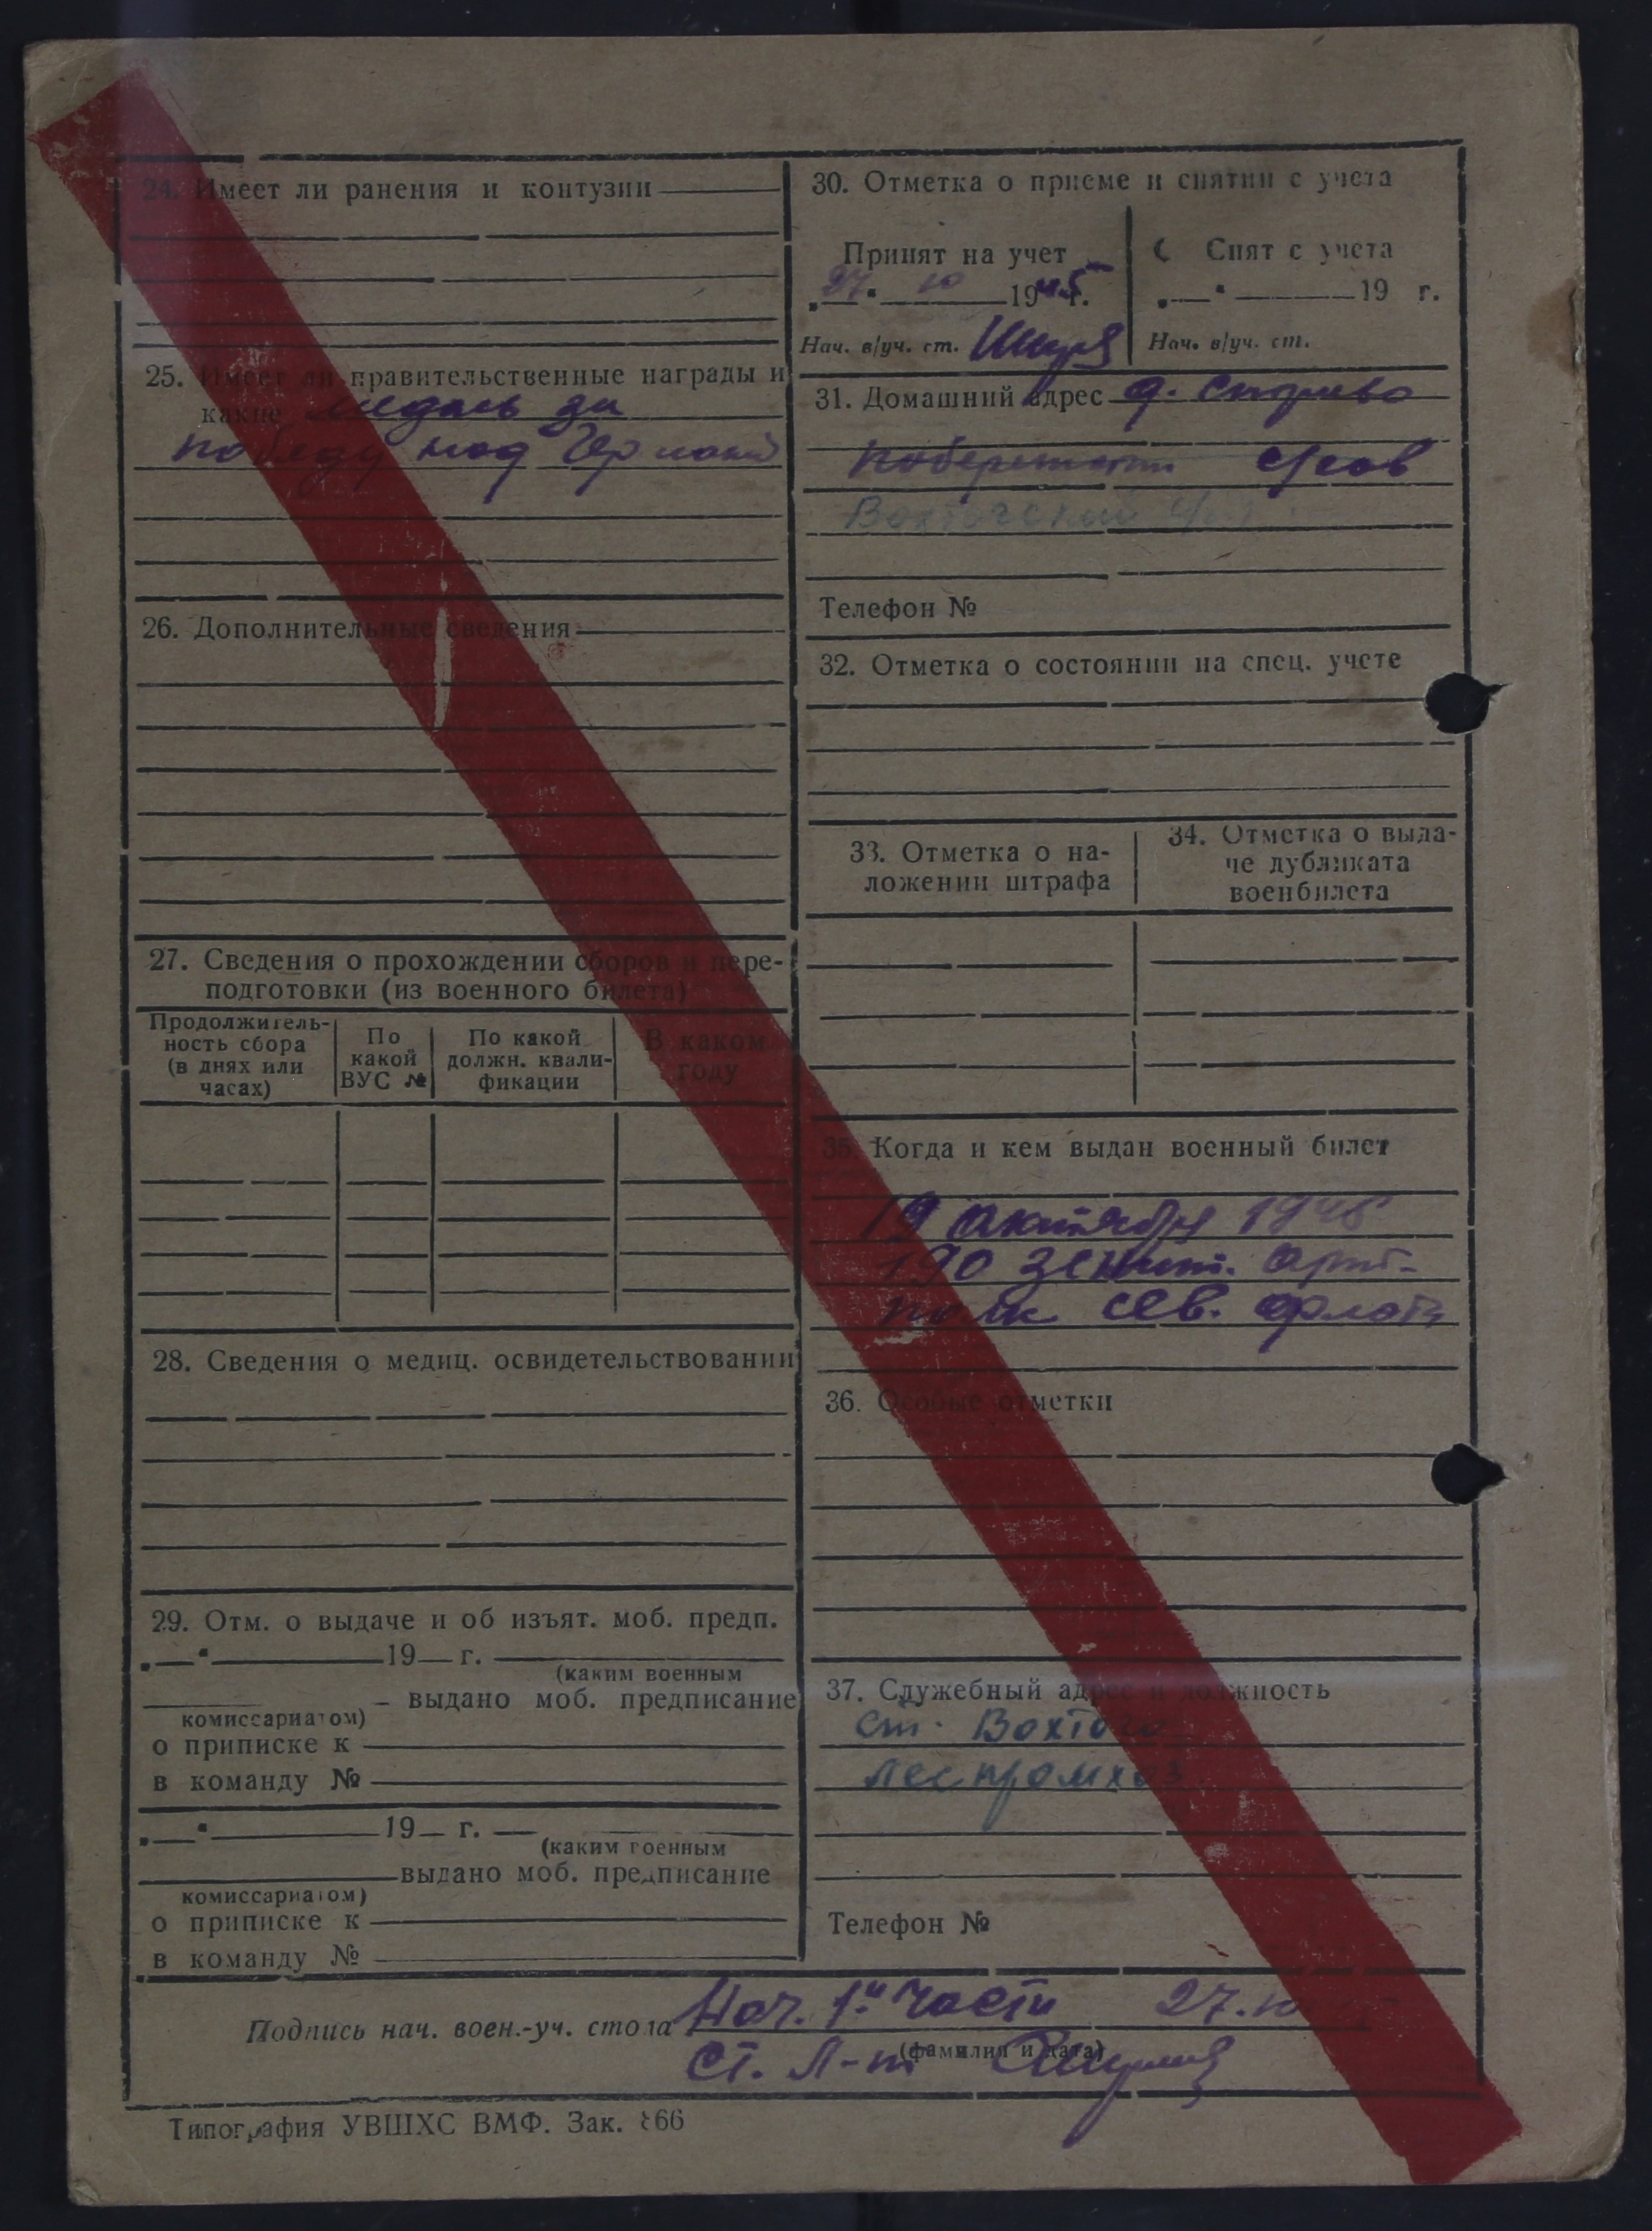 24. Имеет ли ранения и контузии
25. Имеет ли правительственные награды и
какие медаль за
победу над Германи
26. Дополнительные сведения
27. Сведения о прохождении сборов и пере-
подготовки (из военного билета)
Продолжитель-
ность сбора
(в днях или
часах)
По
какой
ВУС №
По какой
должн. квали-
фикации
В каком
году
28. Сведения о медиц. освидетельствовании
29. Отм. о выдаче и об изъят. моб. предп.
19 г.
(каким военным
– выдано моб. предписание
комиссариатом)
о приписке к
в команду №
19 г.
(каким военным
выдано моб. предписание
комиссариатом)
о приписке к
в команду №
30. Отметка о приеме и снятии с учета
Принят на учет
27. 10 1945 г.
Нач. в/уч. ст.
Снят с учета
19 г.
Нач. в/уч. ст.
31. Домашний адрес д.
Телефон №
32. Отметка о состоянии на спец. учете
33. Отметка о на-
ложении штрафа
34. Отметка о выда-
че дубликата
военбилета
35. Когда и кем выдан военный билет
19 октября 1945
190 зенит. арт.
полк сев. флота
36. Особые отметки
37. Служебный адрес и должность
ст. Вохтога
леспромхоз
Телефон №
Подпись нач. воен.-уч. стола Нач. 1й части 27.10
(фамилия и дата)
ст. л-т
Типография УВШХС ВМФ. Зак. 866